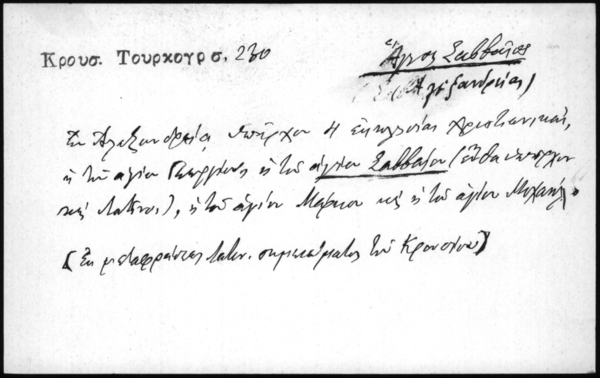 Κρουσ. Τουρκογρ σ. 230
Ἅγιος Σάββατος
(Ἀλεξανδρείας)
Ἐν Ἀλεξανδρείᾳ ὑπῆρχον 4 ἐκκλησίαι χριστιανικαί,
ἡ τοῦ ἁγίου Γεωργίου, ἡ τοῦ ἁγίου Σαββαίου (ἔνθα ὑπῆρχον
καὶ Λατῖνοι), ἡ τοῦ ἁγίου Μάρκου καὶ ἡ τοῦ ἁγίου Μιχαήλ.
(Ἐκ μεταφράσεως λατιν. σημειώματος τοῦ Κρουσίου)